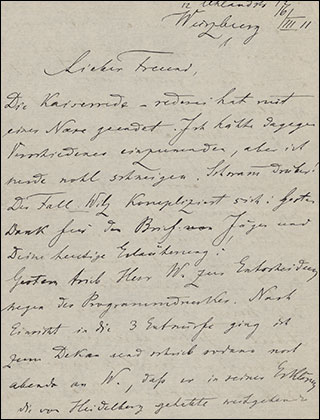 12 Uhlandstr. 17
Würzburg 16/III 11
Lieber Freund,
Die Kaiserrede – rederei hat mit
einer Nase geendet. Ich hätte dagegen
Verschiedenes einzuwenden, aber ich
werde wohl schweigen. Schwam drüber!
Der Fall Witz kompliziert sich: Gestern
Dank für den Brief von Jäger und
Deine heutige Erläuterung!
Gestern schrieb Herr W. zur Entscheidung
wegen des Programmdruckes. Nach
Einsicht in die 3 Entwürfe ging ich
zum Dekan und schrieb ordans noch
abends an W., daß er in seiner Erklärung
die von Heidelberg